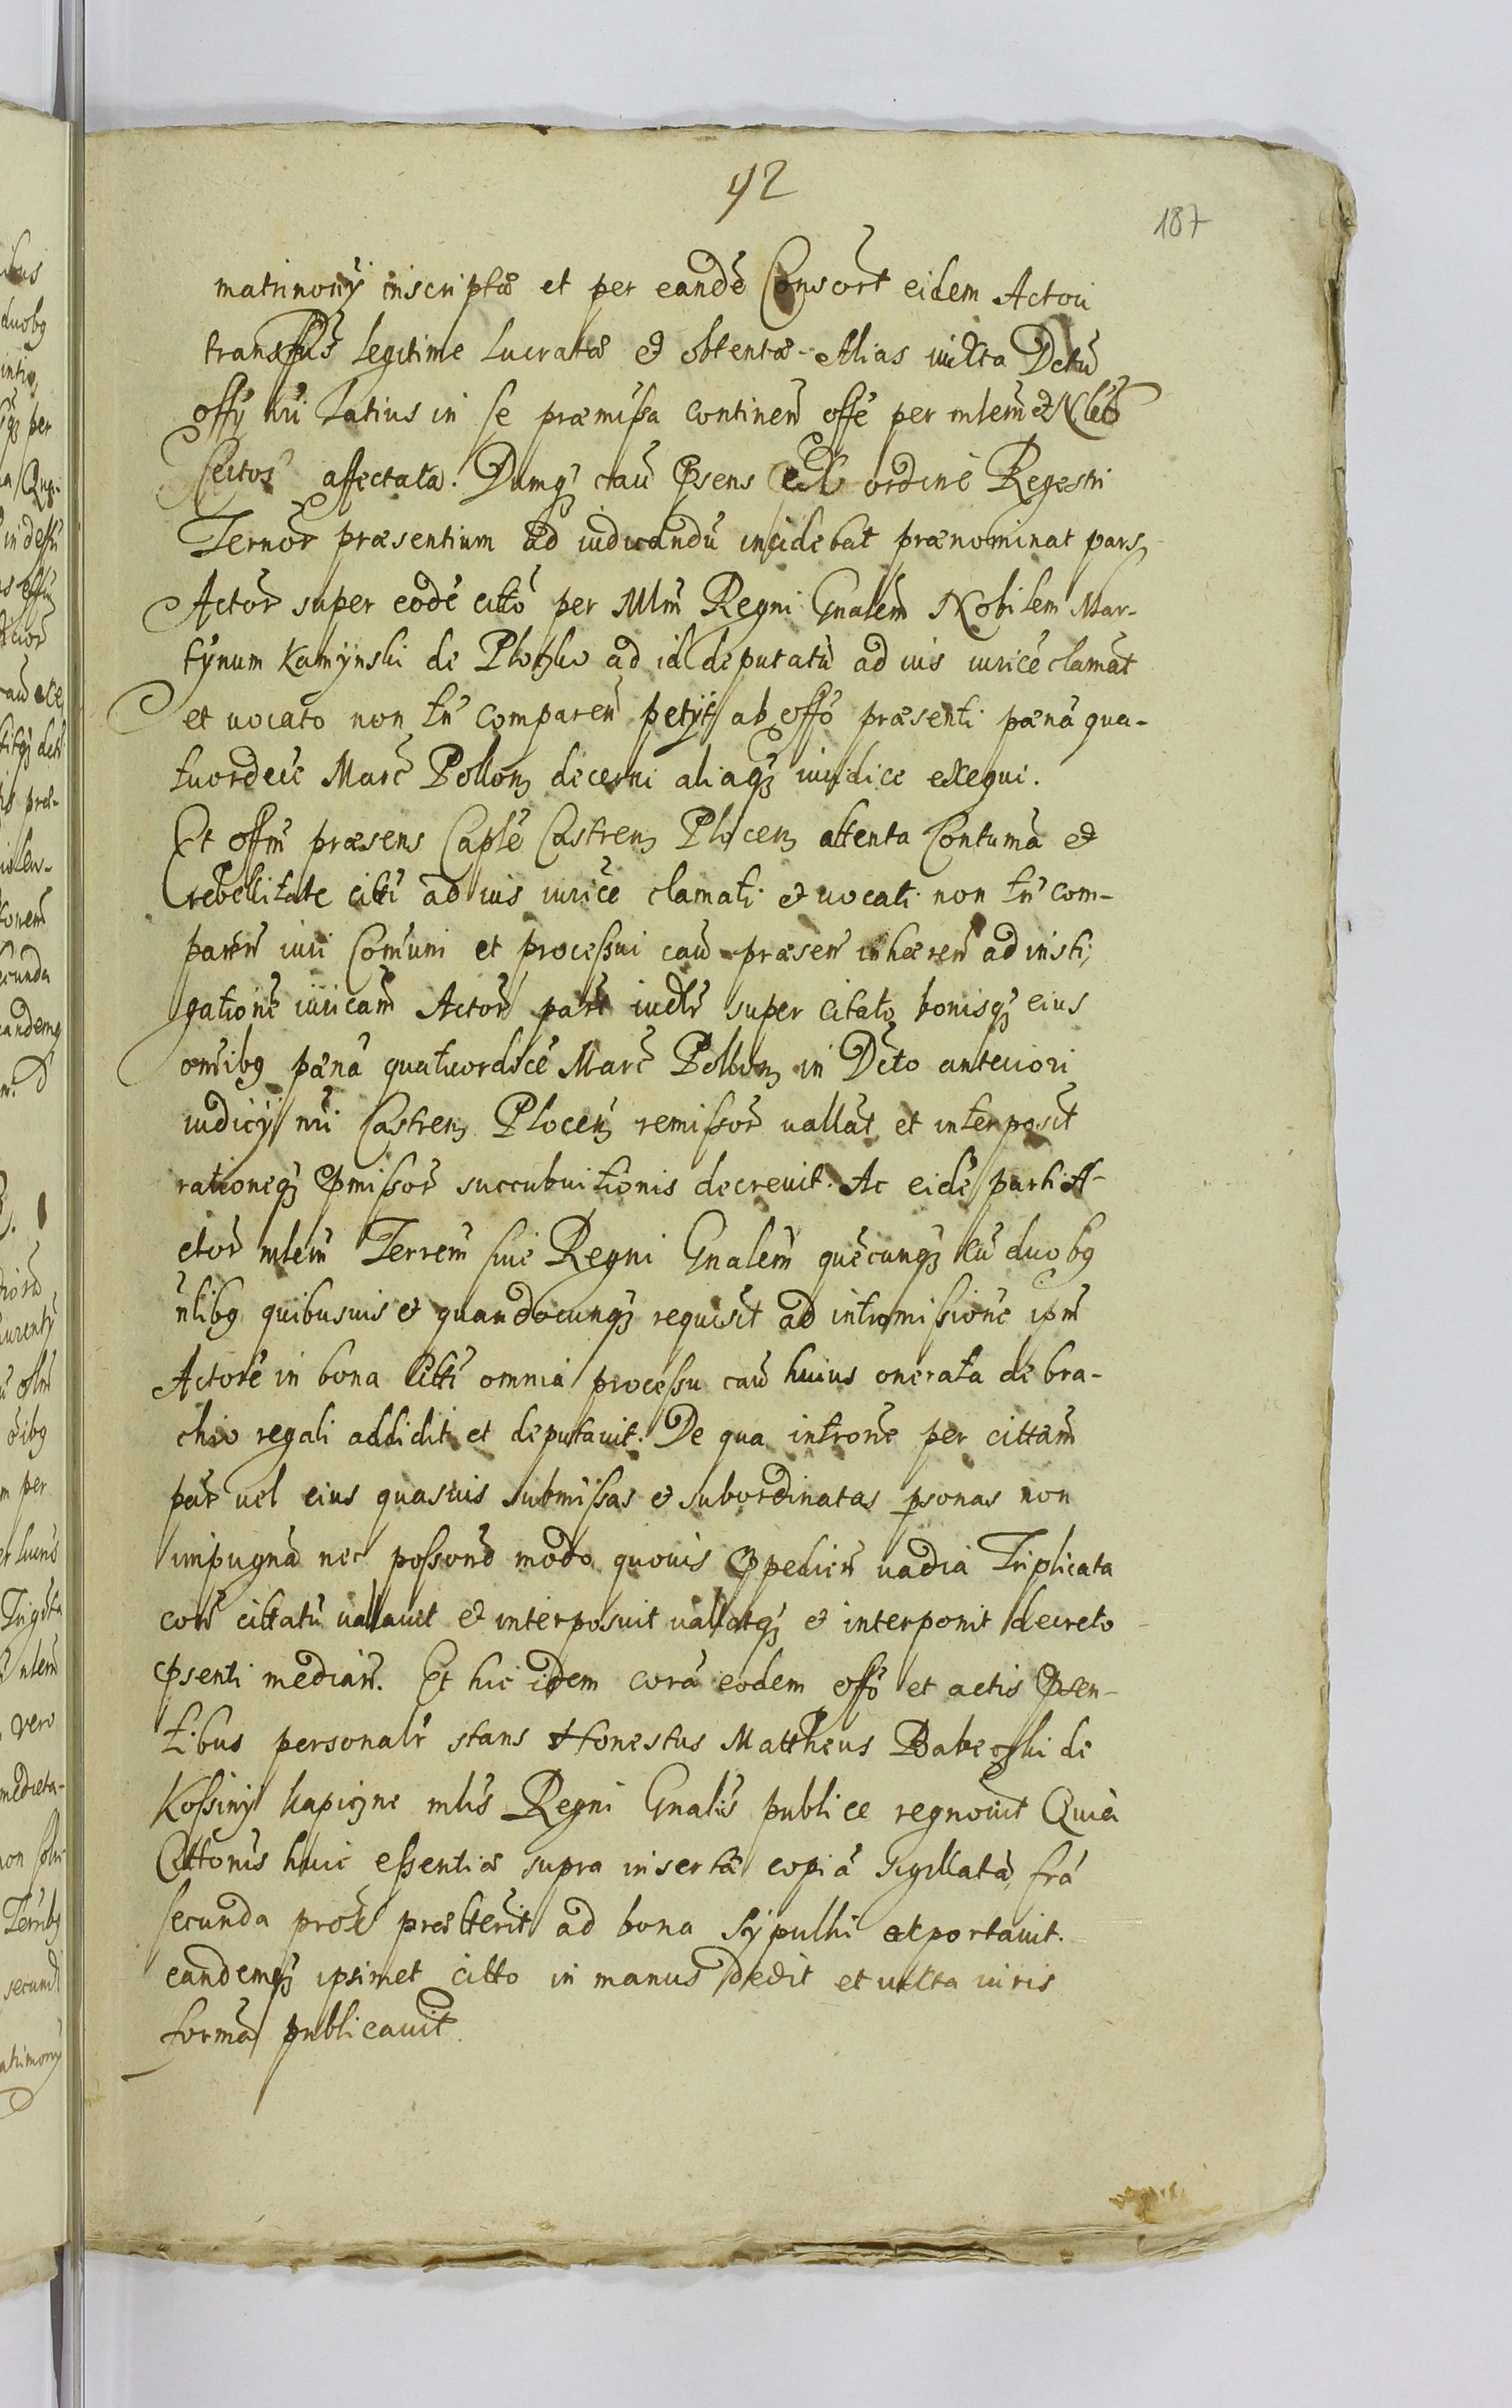 42
187
matrimonÿ inscriptæ et per eandē Consort eidem Actori
transfus legitime lucratæ et obtentæ. Alias iuxta Detū
offÿ nri latius in se præmissa continen offē per mlem et Nles
Scitos affectata. Dumq3 cau Psens ex ordine Regestri
Ternor præsentium ad iudicandū incidebat prænominat pars
Actor super eodē citto per Mlm Regni Gnalem Nobilem Mar-
tÿnum Kamÿnski de Plotzko ad id deputatū ad ius iurice clamat
et uocato non tn comparen petÿt ab offo præsenti pæna qua-
tuordecē Marc Pollon decerni aliaq3 iuridice exequi.
Et offm præsens Caple Castren Plocen attenta Contuma et
rebellitate citti ad ius iurice clamati et uocati non tn com-
paren iuri Comuni et processui cau præsen inhæren ad insti-
gationē iuricam Actor part iudlr super citato bonisq3 eius
omibg pæna quatuordecē Marc Pollon in Dēto anteriori
iudicÿ nri Castren Plocen remissor uallat et interposit
rationeq3 Pmissor succubuitionis decreuit. Ac eidē parti A-
ctor mlem Terrem siue Regni Gnalem quēcunq3 cū duobg
nlibg quibusuis et quandocunq3 requisit ad intromissionē ipm
Actorē in bona citti omnia processu cau huius onerata de bra-
chio regali addidit et deputauit. De qua introne per cittam
par uel eius quasuis submissas et subordinatas psonas non
impugna nec possond modo quouis Ppedien uadia Triplicata
con cittatū uallauit et interposuit uallatq3 et interponit decreto
Psenti median. Et hic idem corā eodem offo et actis Psen-
tibus personalr stans Honestus Mattheus Babecki de
Kossinÿ kapiczne mlis Regni Gnalis publice regnouit Quia
Cittonis huic essentiæ supra insertā copiā sigillatā frā
secunda proxe præterit ad bona Sÿpulki exportauit.
eandemq3 ipsimet citto in manus dedit et iuxta iuris
formā publicauit.